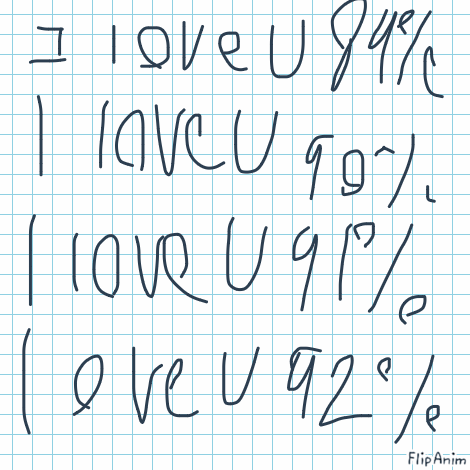 I love U 89%
I love U 90%
I love U 91%
I ove U 92%
FlipAnim